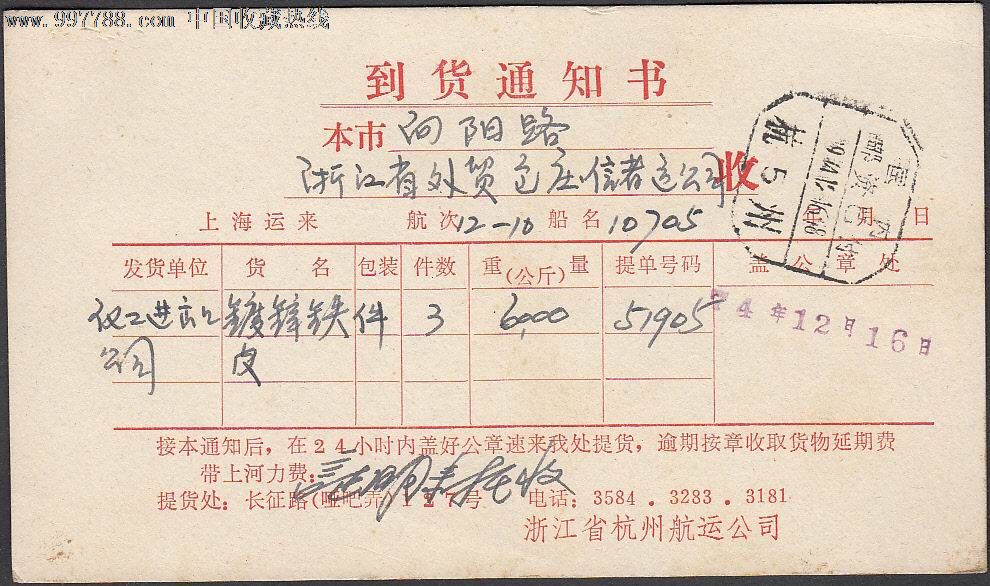 www.997788.com 中国收藏热线
到货通知书
本市 向阳路
浙江省外贸包庄信托运公司 收
上海运来 航次 12-10 船名 10705 年 月 日
发货单位 货 名 包装 件数 重(公斤)量 提单号码 盖公章处
化工进出口公司 镀锌铁皮 件 3 6000 51905
74年12月16日
杭 5 州
邮资已付
接本通知后，在24小时内盖好公章速来我处提货，逾期按章收取货物延期费
带上河力费:
提货处：长征路(哑吧弄)127号 电话：3584．3283．3181
浙江省杭州航运公司